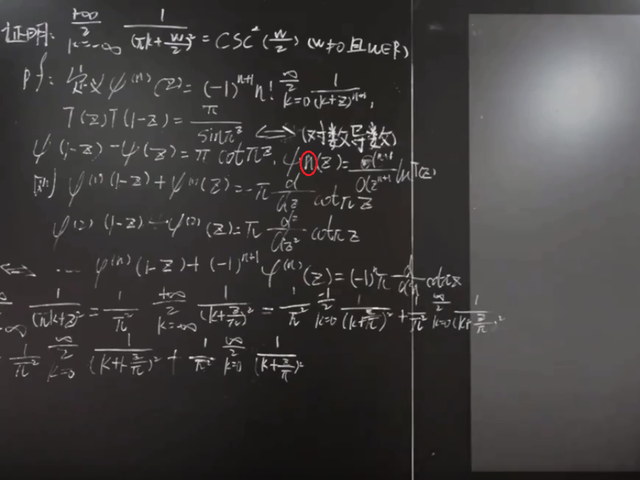 证明: \sum_{k=-\infty}^{+\infty} \frac{1}{(\pi k+\frac{w}{2})^2} = CSC^2(\frac{w}{2}) (w≠0且w∈R)
pf: 定义 ψ^{(n)}(z) = (-1)^{n+1} n! \sum_{k=0}^{\infty} \frac{1}{(k+z)^{n+1}},
Γ(z)Γ(1-z) = \frac{π}{sinπz} ⟺ (对数导数)
ψ(1-z) - ψ(z) = π cotπz. ψ^{n}(z) = \frac{d^{n+1}}{dz^{n+1}} lnΓ(z)
则 ψ^{(1)}(1-z) + ψ^{(1)}(z) = -π \frac{d}{dz} cotπz
ψ^{(2)}(1-z) - ψ^{(2)}(z) = π \frac{d^2}{dz^2} cotπz
⟺ ... ψ^{(n)}(1-z) + (-1)^{n+1} ψ^{(n)}(z) = (-1)^n π \frac{d}{dz^n} cotπz
\frac{1}{(πk+z)^2} = \frac{1}{π^2} \sum_{k=-\infty}^{+\infty} \frac{1}{(k+\frac{z}{π})^2} = \frac{1}{π^2} \sum_{k=0}^{-1} \frac{1}{(k+\frac{z}{π})^2} + \frac{1}{π^2} \sum_{k=0}^{\infty} \frac{1}{(k+\frac{z}{π})^2}
\frac{1}{π^2} \sum_{k=0}^{\infty} \frac{1}{(k+1-\frac{z}{π})^2} + \frac{1}{π^2} \sum_{k=0}^{\infty} \frac{1}{(k+\frac{z}{π})^2}